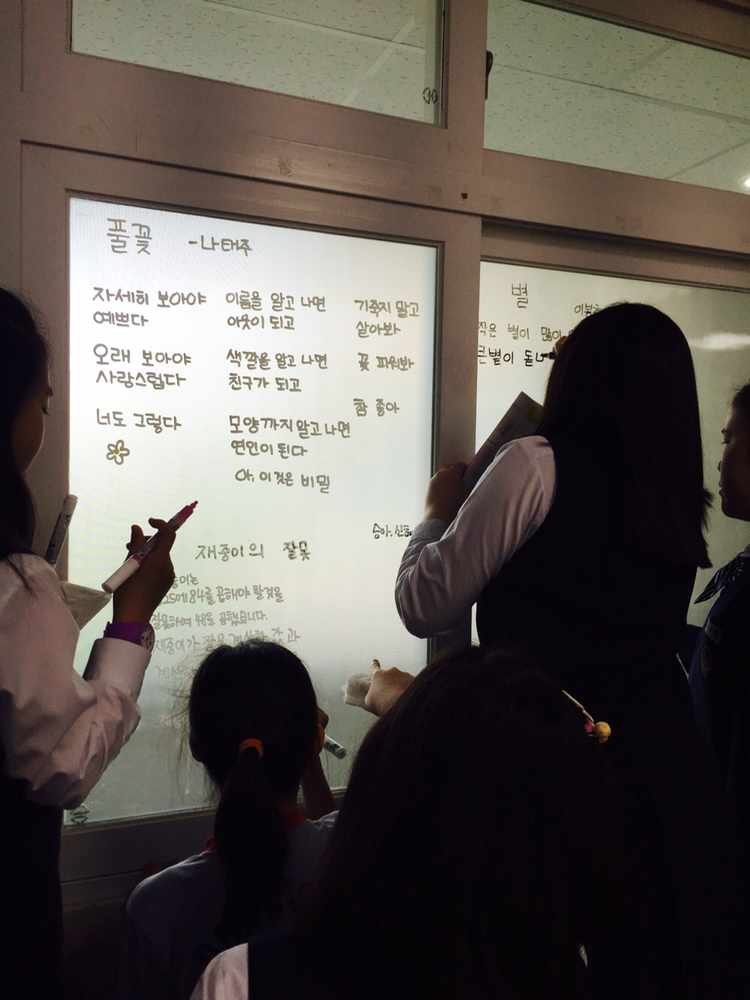 풀꽃 -나태주
자세히 보아야
예쁘다
오래 보아야
사랑스럽다
너도 그렇다
이름을 알고 나면
이웃이 되고
색깔을 알고 나면
친구가 되고
모양까지 알고 나면
연인이 된다
아, 이것은 비밀
기죽지 말고
살아봐
꽃 피워봐
참 좋아
승아,
재중이의 잘못
84를 곱해야 할것을
잘못하여 48을 곱했습니다.
재중이가 잘못 계산한 값과
별
작은 별이 많이
큰별이 돋